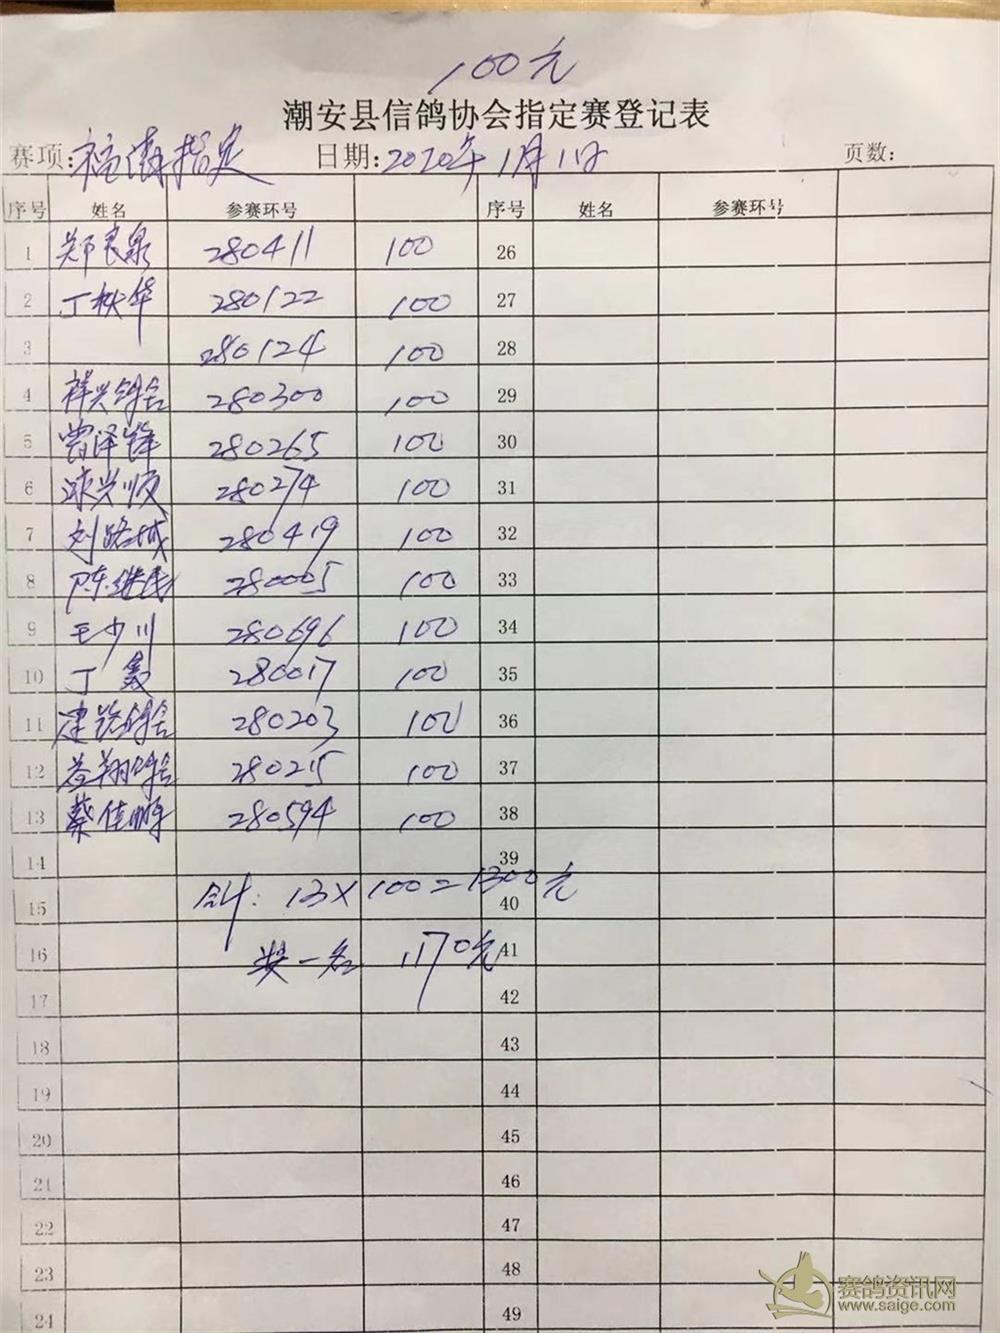 100元
潮安县信鸽协会指定赛登记表
赛项:福清指定 日期:2020年1月1日 页数:
序号 姓名 参赛环号 序号 姓名 参赛环号
1 郑良泉 280411 100 26
2 丁秋华 280122 100 27
3 280124 100 28
4 祥兴鸽舍 280300 100 29
5 曾泽锋 280265 100 30
6 兴顺 280274 100 31
7 刘路城 280419 100 32
8 陈继民 280005 100 33
9 王少川 280696 100 34
10 丁 280017 100 35
11 建 鸽舍 280203 100 36
12 益翔鸽舍 280215 100 37
13 蔡佳 280594 100 38
14 39
合计: 13×100=1300元
15 40
16 奖一名 1170元 41
17 42
18 43
19 44
20 45
21 46
22 47
23 48
24 49
赛鸽资讯网
www.saige.com